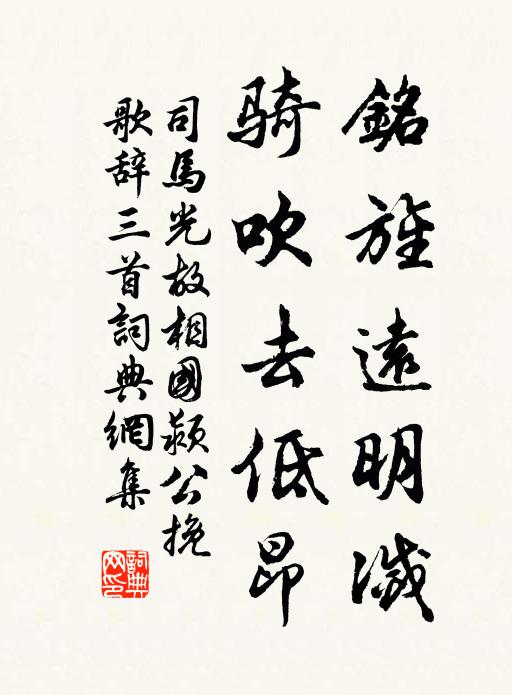 銘旌遠明滅
騎吹去低昂
司馬光故相國潁公挽
歌辞三首詞典網集
詞典網印